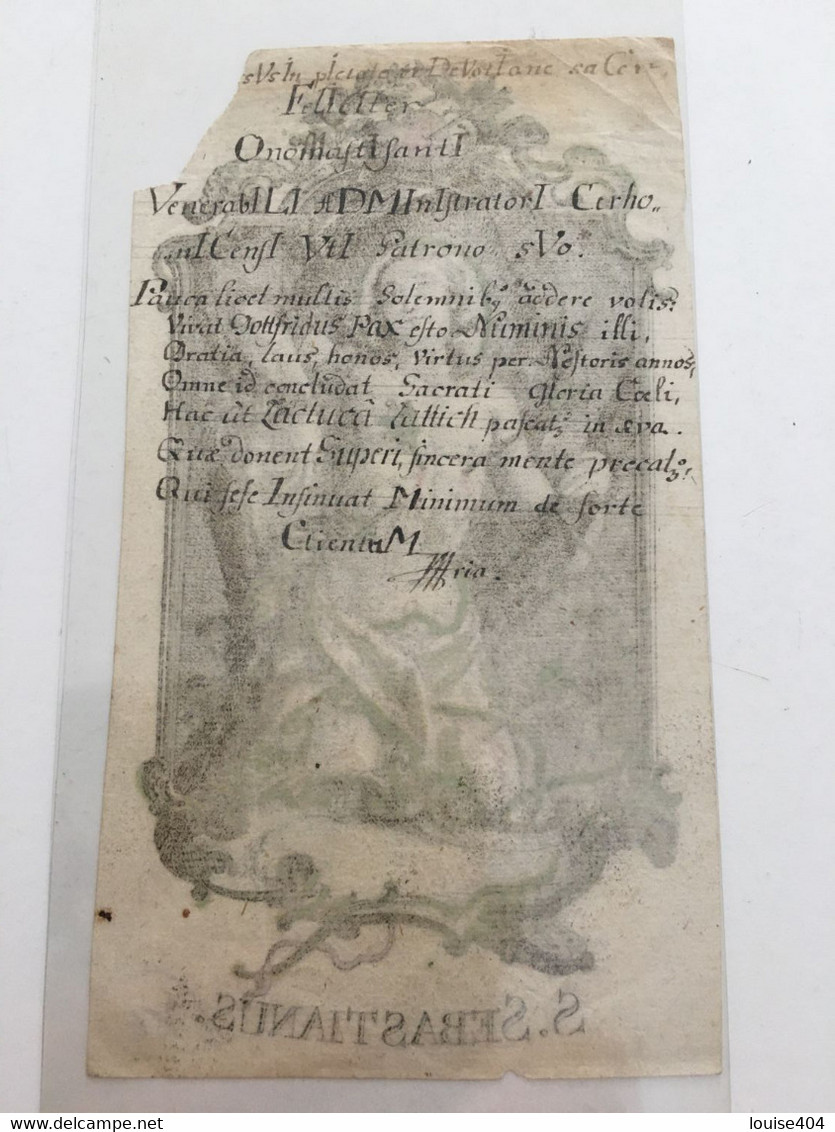 sVs In pIetate et DeVotIone saCer,
FelIcIter
OnoMastIsantI
VenerabILI ADMInIstratorI Cerho„
„nICensI VtI Patrono sVo.
Pauca licet multis Solemnibq addere votis:
Vivat Gottfridus Pax esto Numinis illi,
Gratia, laus, honos, virtus per Nestoris annos,
Omne id concludat Sacrati Gloria Coeli,
Hac ut Lactucâ Lattich pascatz in æva.
Quæ donent Superi, sincera mente precatz,
Qui sese Insinuat Minimum de sorte
ClientuM
S. SEBASTIANUS.
delcampe.net
louise404